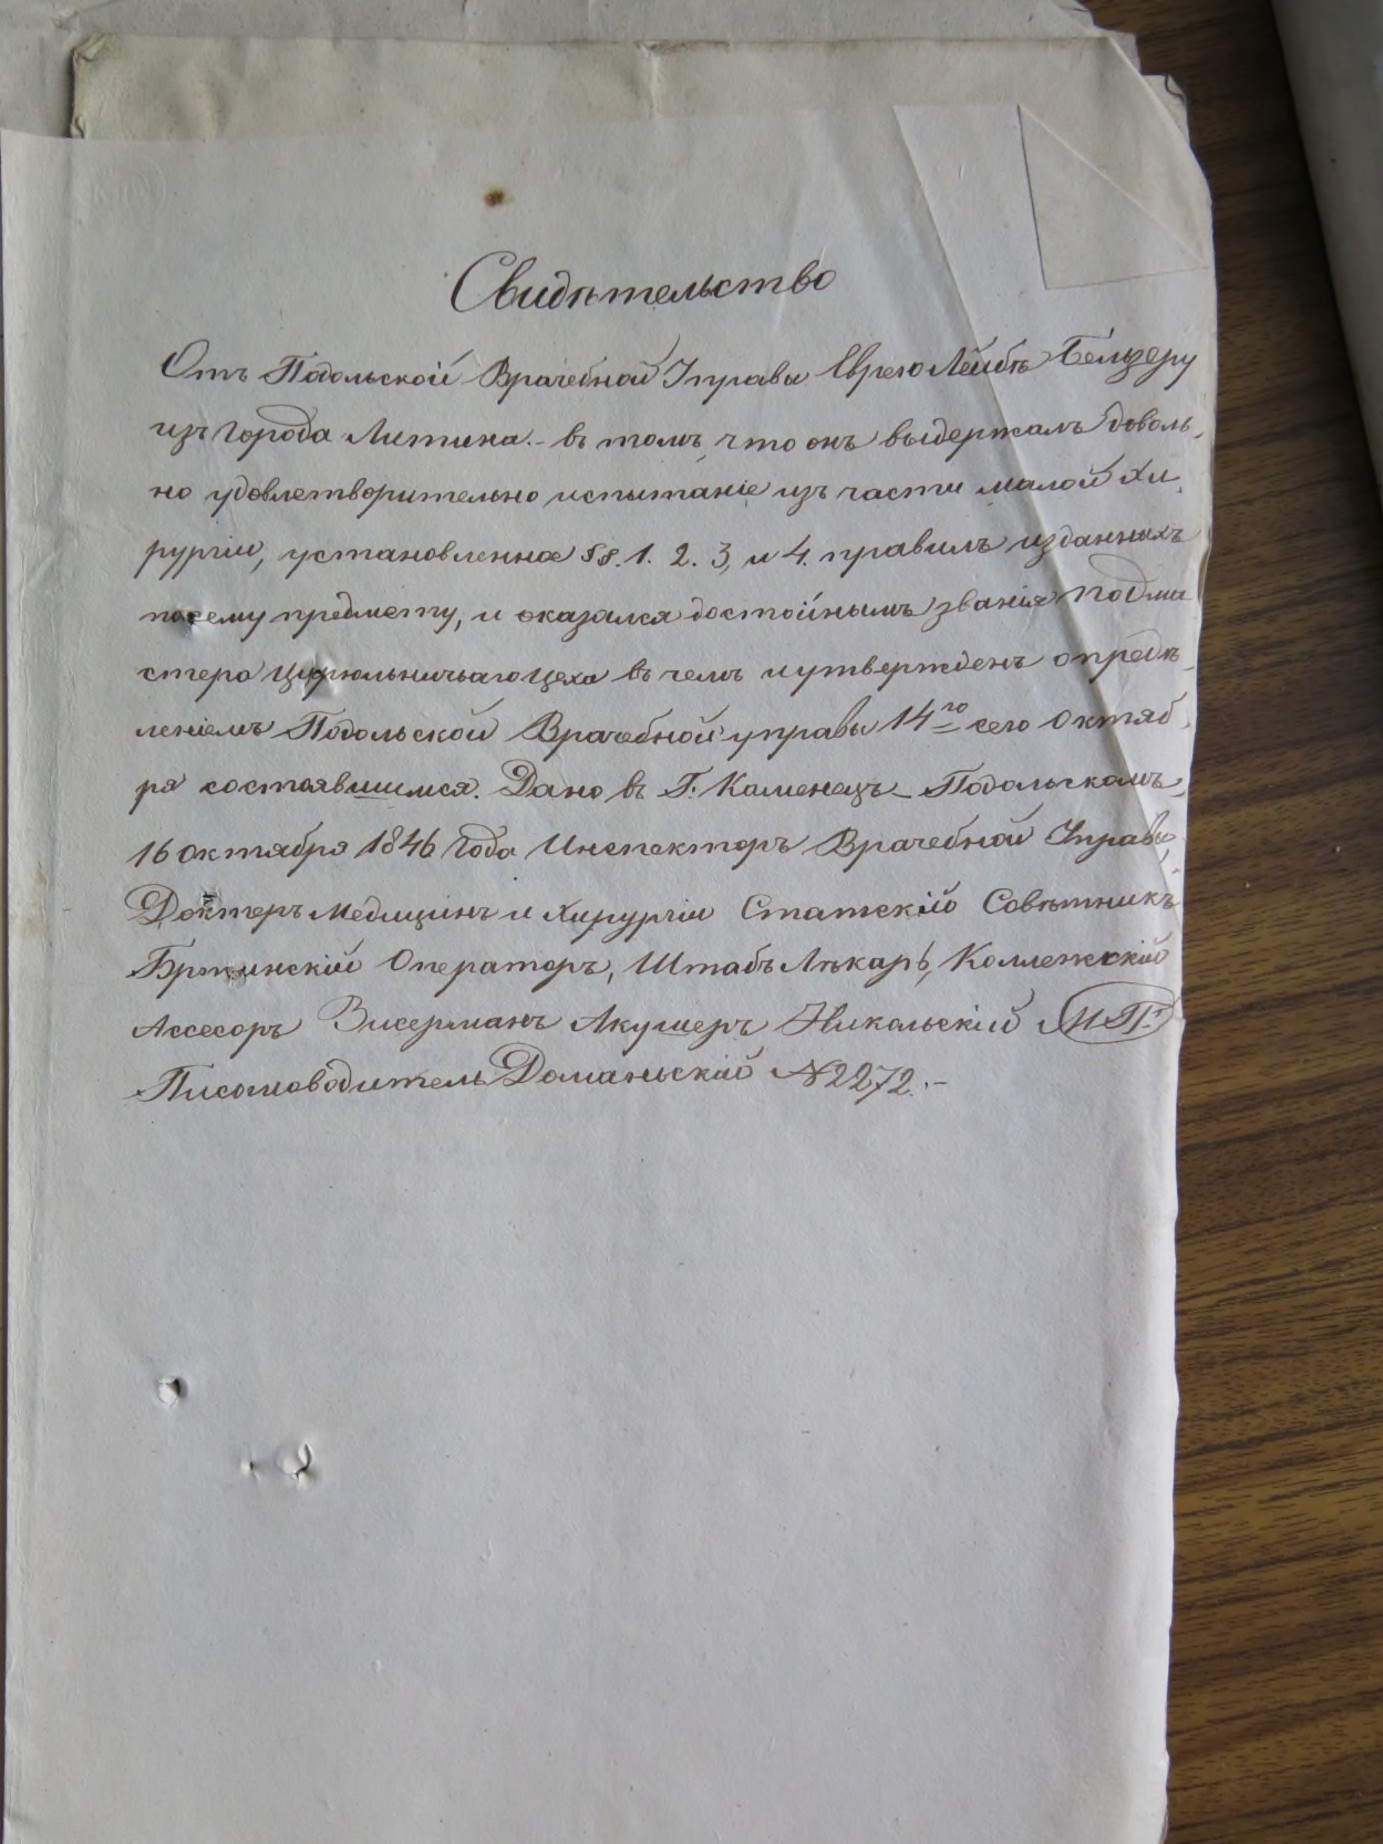 Свидѣтельство
Отъ Подольской Врачебной Управы Еврею Лейбѣ Бельзеру
изъ города Литина.- въ томъ что онъ выдержалъ доволь-
но удовлетворительно испытаніе изъ части малой Хи-
рургіи, установленное §§. 1. 2. 3, и 4. правилъ изданныхъ
посему предмету, и оказался достойнымъ званія подма
стера Цирюльничьаго Цеха въ чемъ и утвержденъ опредѣ-
леніемъ Подольской Врачебной управы 14го сего Октяб-
ря состоявшимся. Дано въ Г. Каменецъ-Подольскомъ,
16 октября 1846 года Инспекторъ Врачебной Управы,
Докторъ Медицинъ и Хирургіи Статскій Совѣтникъ
Операторъ, Штабъ Лѣкарь, Коллежскій
Ассесоръ Висерманъ Акушеръ Никольскій М.П.
Письмоводитель Доманьскій №2272.-